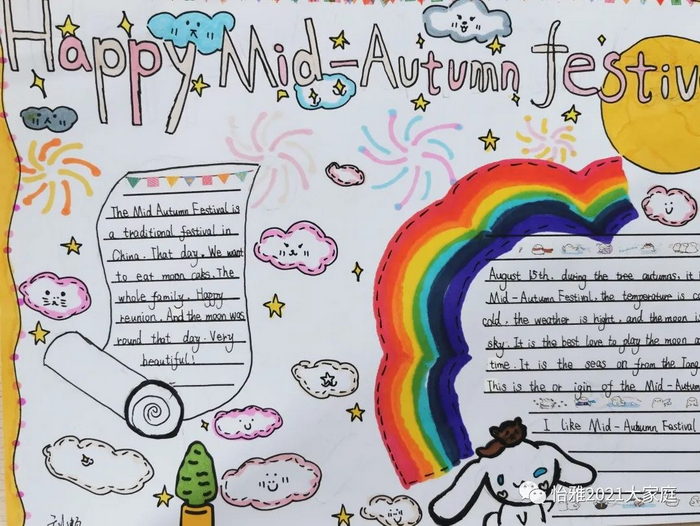 Happy Mid-Autumn festiv
The Mid Autumn Festival is
a traditional fastival in
China. That day. We want
to eat moon caks. The
whole family. Happy
reunion. And the moon was
round that day. Very
beautiful!
August 15th. during the tree autumns, it i
Mid-Autumn Festival, the temperature is n
cold, the weather is hight, and the moon is
sky. It is the best love to play the moon a
time. It is the seas on from the Tang
This is the or igin of the Mid-Autum
I like Mid-Autumn Festival
怡雅2021大家庭